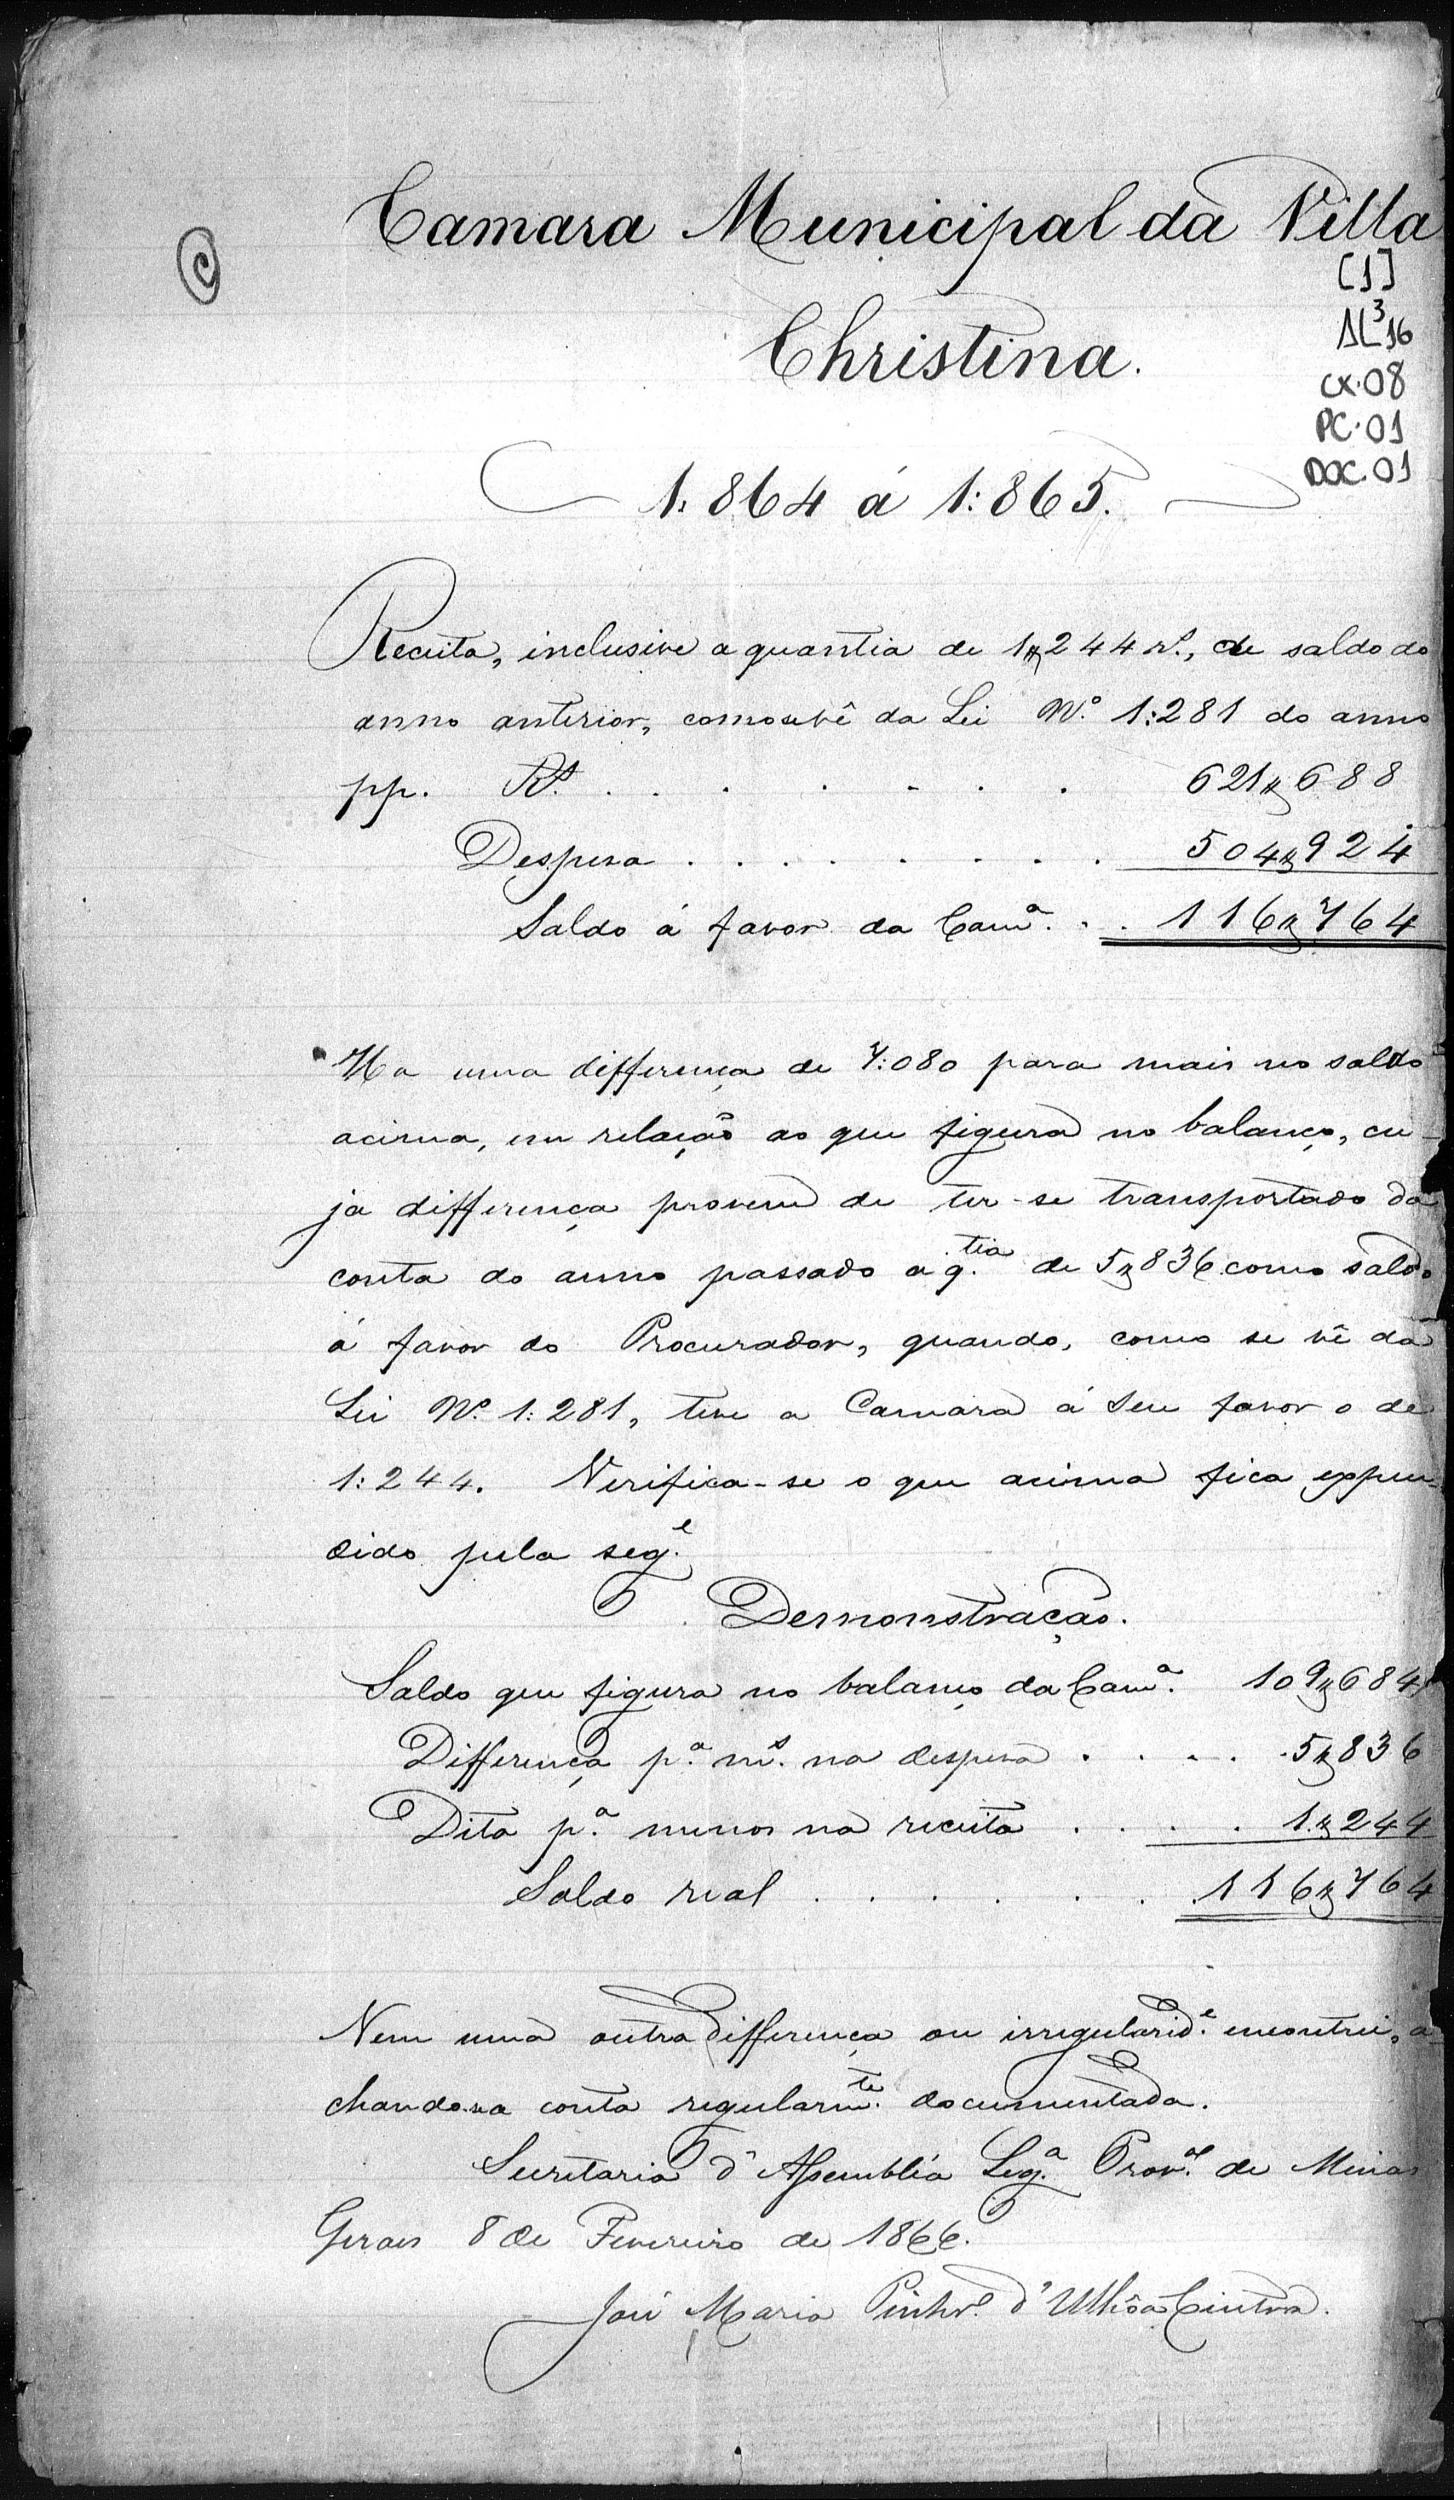 Camara Municipal da Villa
[1]
Christina.
AL³16
CX.08
PC.01
DOC.01
1:864 á 1:865.
Receita, inclusive a quantia de 1$244 rs., de saldo do
anno anterior, como se vê da Lei Nº. 1:281 do anno
pp. Rs. . . . . . . . 621$688
Despesa . . . . . . . . 504$924
Saldo á favor da Camª. . . 116$764
Ha uma differença de 7:080 para mais no saldo
acima, em relação ao que figura no balanço, cu-
ja differença provem de ter-se transportado da
conta do anno passado a q.tia de 5$836 como saldo
á favor do Procurador, quando, como se vê da
Lei Nº. 1:281, teve a Camara á seu favor o de
1:244. Verifica-se o que acima fica expen-
dido pela seg.e
Demonstração.
Saldo que figura no balanço da Camª. 109$684
Differença p.ª m.s na despesa . . . . 5$836
Dita p.ª menos na receita . . . . 1$244
Saldo real . . . . . . . 116$764
Nem uma outra differença ou irregularid.e encontrei, a
chando-na conta regularm.te documentada.
Secretaria d'Assembléa Leg.ª Prov.al de Minas
Geraes 8 de Fevereiro de 1866.
José Maria Pinhr.o d'Ulhôa Cintra.